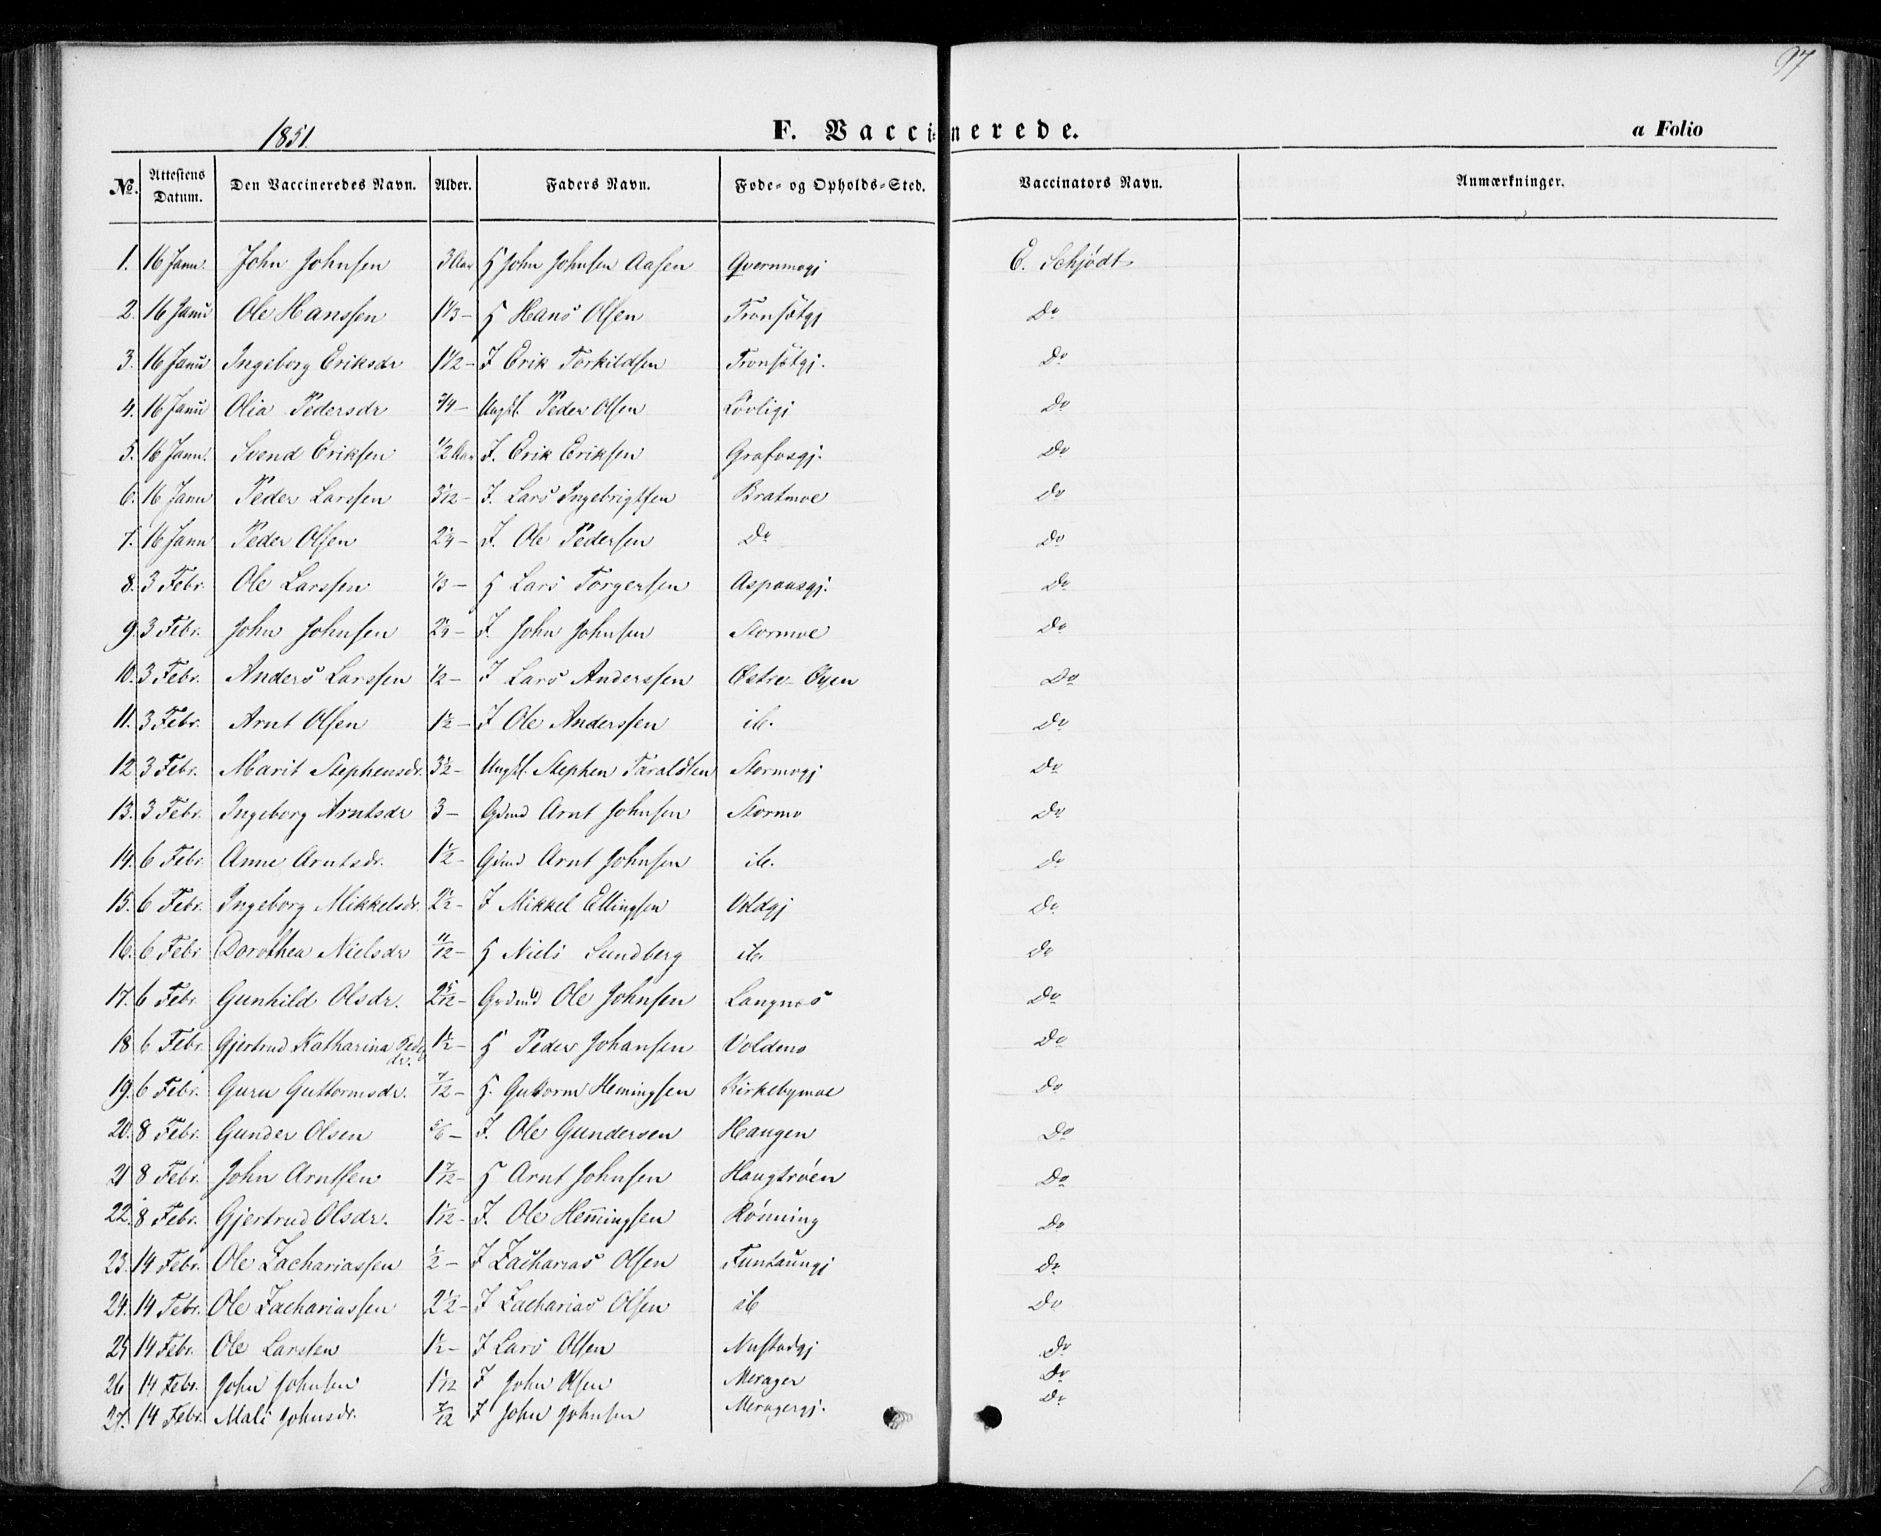 97
1851.
F. Vaccinerede.
a Folio
No. Attestens Datum. Den Vaccineredes Navn. Alder. Faders Navn. Føde- og Opholds-Sted. Vaccinators Navn. Anmærkninger.
1. 16 Janu. John Johnsen 3 Aar John Johnsen Aasen Qvernmogj E. Schjødt
2. 16 Janu Ole Hanssen 1 1/3 - Hans Olsen Tronsætgj Do
3. 16 Janu Ingeborg Eriksdr 1 1/2 - I Erik Torkildsen Tronsætgj. Do
4. 16 Janu Olia Pedersdr 3/4 - Ungkl. Peder Olsen Lövligj Do
5. 16 Janu. Svend Eriksen 1/2 Aar I. Erik Eriksen Grafosgj. Do
6. 16 Janu Peder Larssen I. Lars Ingebrigtsen Bratmoe Do
7. 16 Janu Peder Olsen I. Ole Pedersen Do Do
8. 3 Febr. Ole Larssen Lars Torgersen Aspaasgj. Do
9. 3 Febr. John Johnsen I. John Johnsen Stormoe Do
10. 3 Febr. Anders Larssen 1/2 - I Lars Anderssen Østre Øyen Do
11. 3 Febr. Arnt Olsen 1 1/2 - I Ole Anderssen ib. Do
12 3 Febr. Marit Stephensdr. 3 1/2 - Ungkl. Stephen Taraldsen Stormogj Do
13. 3 Febr. Ingeborg Arntsdr 3 - Gdmd Arnt Johnsen Stormo Do
14. 6 Febr. Anne Arntsdr. 1 1/2 - Gdmd Arnt Johnsen ib. Do
15. 6 Febr. Ingeborg Mikkelsdr. 2 1/2 - I Mikkel Ellingsen Voldgj Do
16. 6 Febr Dorothea Nielsdr 11/12 - Niels Sundberg ib. Do
17. 6 Febr. Gunhild Olsdr. 2 5/12 - Grdmd Ole Johnsen Langnes Do
18 6 Febr. Gjertrud Katharina Peders dr. 1 1/2 - Peder Johansen Voldens Do
19. 6 Febr. Guru Guttormsdr. 7/12 - Guttorm Hemingsen Kirkebymoe Do
20. 8 Febr. Gunder Olsen 5/6 - I. Ole Gundersen Haugen Do
21 8 Febr. John Arntsen 1 7/12 - Arnt Johnsen Haugtröen Do
22. 8 Febr. Gjertrud Olsdr. 1 1/12 - I. Ole Hemingsen Rönning Do
23. 14 Febr. Ole Zachariassen 1/2 - I Zacharias Olsen Funtaungj Do
24. 14 Febr. Ole Zachariassen 2 1/2 - I Zacharias Olsen ib Do
25 14 Febr. Ole Larssen 1 1/2 - I Lars Olsen Nustadgj Do
26 14 Febr. John Johnsen 1 1/12 I John Olsen Merager Do
27. 14 Febr. Mali Johnsdr. 7/12 I John Johnsen Meragergj. Do